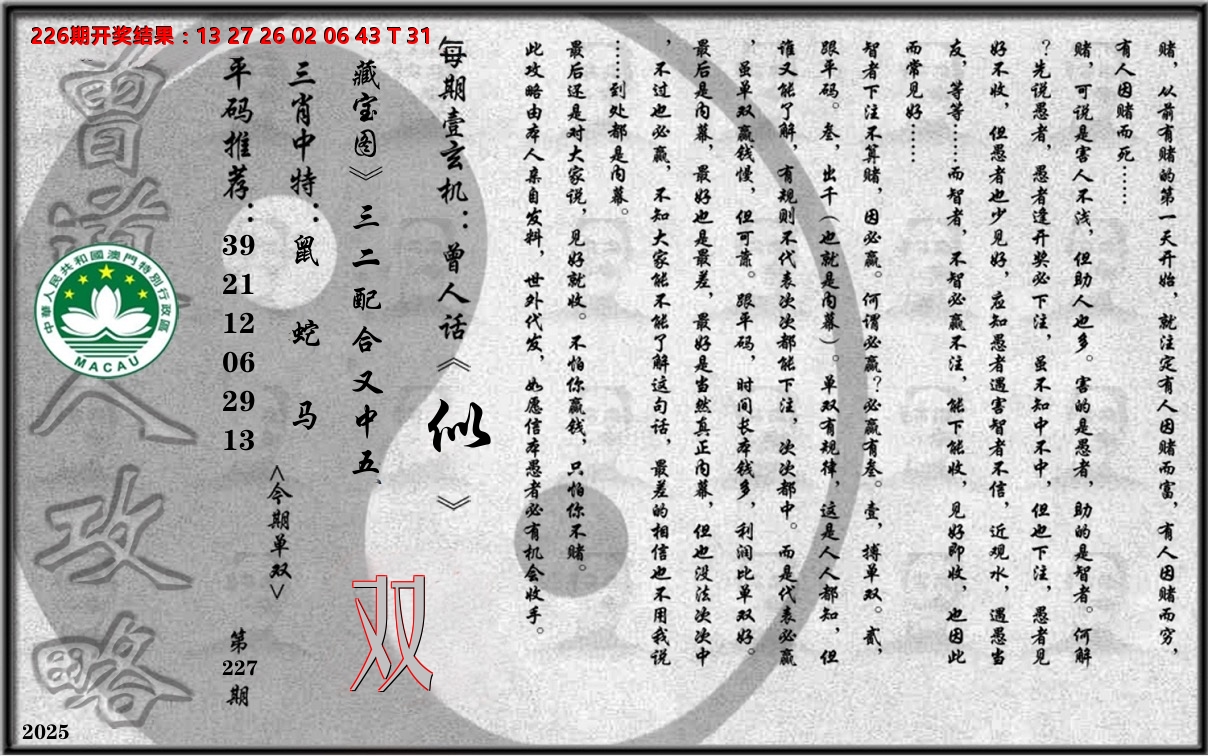 226期开奖结果：13 27 26 02 06 43 T 31
赌，从前有赌的第一天开始，就注定有人因赌而富，有人因赌而穷，
有人因赌而死……
赌，可说是害人不浅，但助人也多。害的是愚者，助的是智者。何解
？先说愚者，愚者逢开奖必下注，虽不知中不中，但也下注，愚者见
好不收，但愚者也少见好，应知愚者遇害智者不信，近观水，遇愚当
友，等等……而智者，不智必赢不注，能下能收，见好即收，也因此
而常见好……
智者下注不算赌，因必赢。何谓必赢？必赢有叁。壹，搏单双。贰，
跟平码。叁，出千（也就是内幕）。单双有规律，这是人人都知，但
谁又能了解，有规则不代表次次都能下注，次次都中。而是代表必赢
，虽单双赢钱慢，但可靠。跟平码，时间长本钱多，利润比单双好。
最后是内幕，最好也是最差，最好是当然真正内幕，但也没法次次中
，不过也必赢，不知大家能不能了解这句话，最差的相信也不用我说
……到处都是内幕。
最后还是对大家说，见好就收。不怕你赢钱，只怕你不赌。
此攻略由本人亲自发料，世外代发，如愿信本愚者必有机会收手。
每期壹玄机：曾人话《似》
藏宝图》三二配合又中五、
双
三肖中特：鼠 蛇 马
<今期单双>
平码推荐：39 21 12 06 29 13
第227期
曾道人攻略
中華人民共和國澳門特別行政區
MACAU
2025